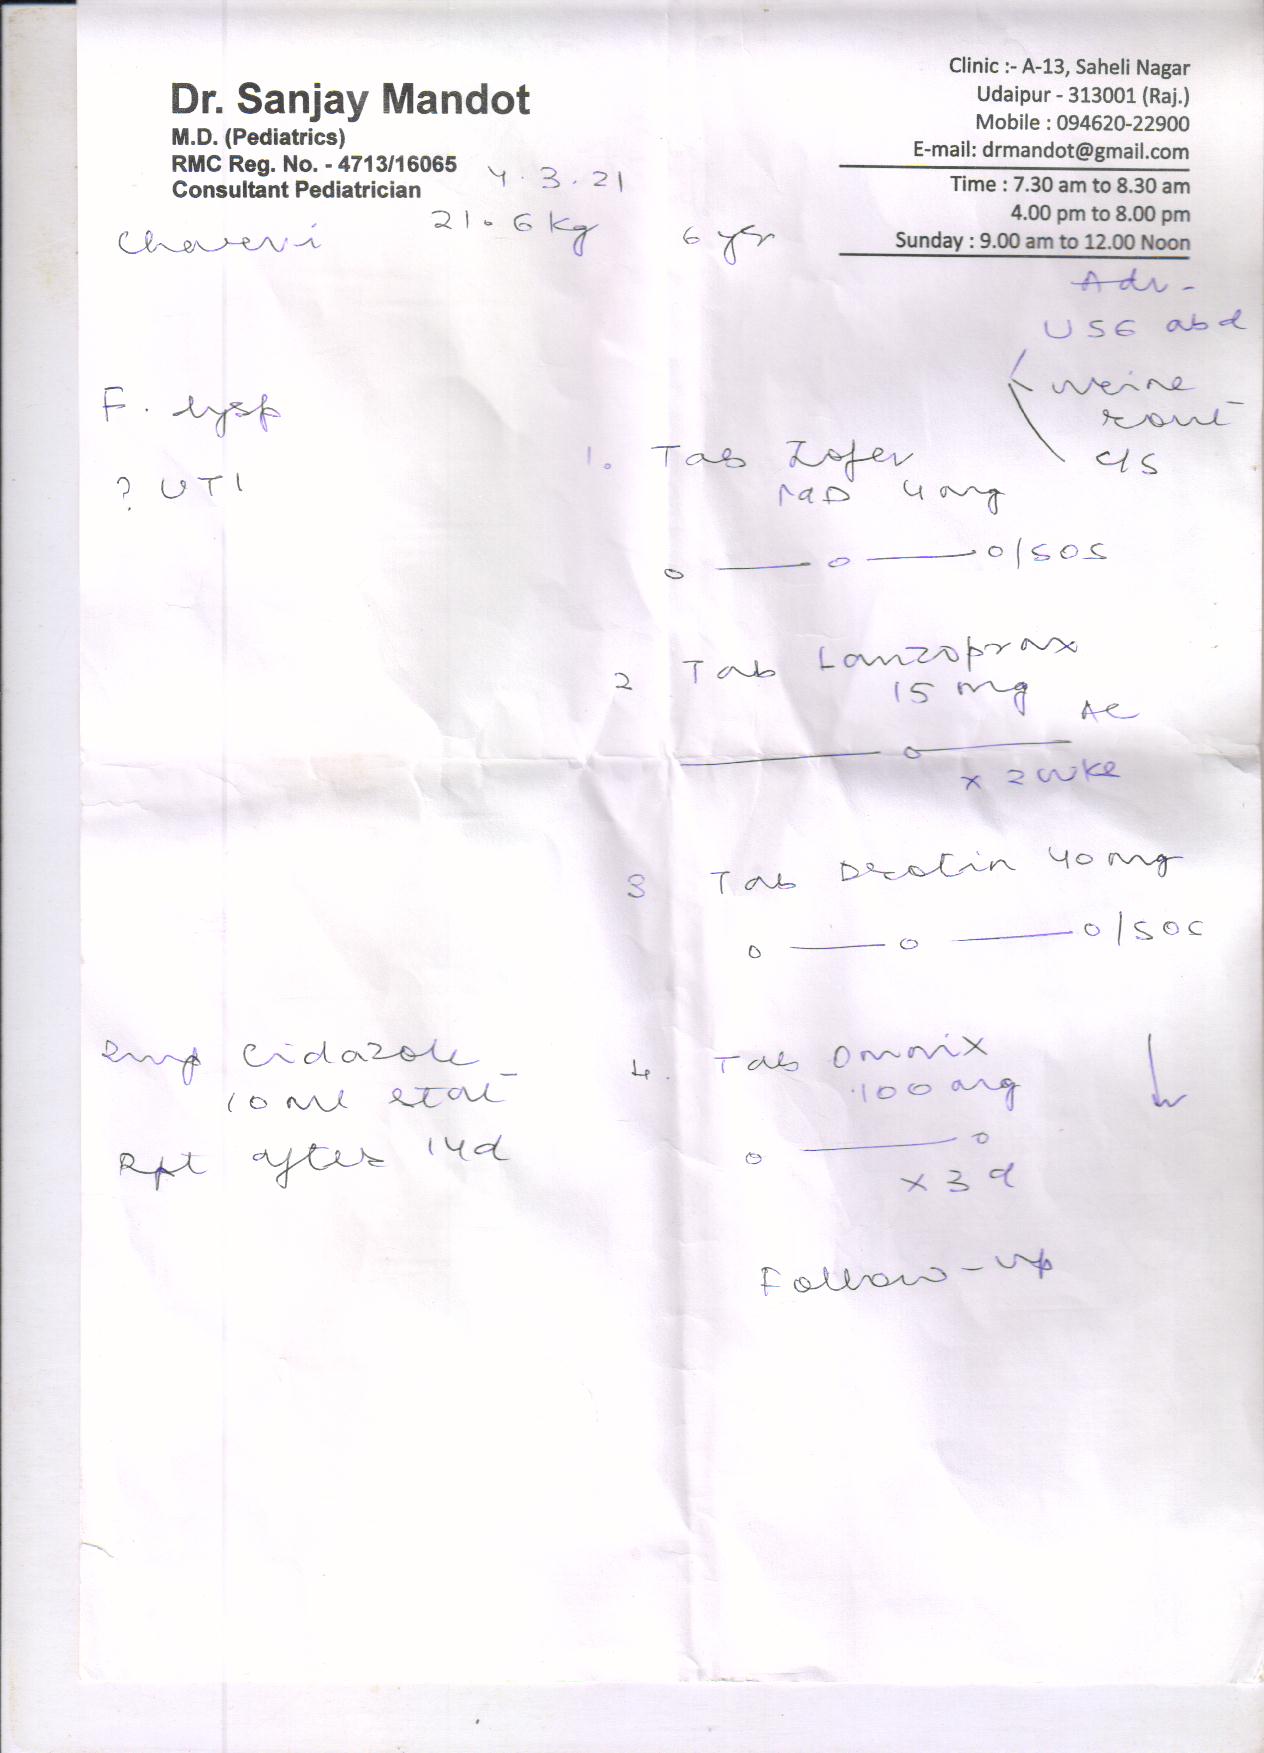 Dr. Sanjay Mandot
M.D. (Pediatrics)
RMC Reg. No. - 4713/16065
Consultant Pediatrician
Clinic :- A-13, Saheli Nagar
Udaipur - 313001 (Raj.)
Mobile : 094620-22900
E-mail: drmandot@gmail.com
Time : 7.30 am to 8.30 am
4.00 pm to 8.00 pm
Sunday : 9.00 am to 12.00 Noon
4.3.21
21.6 kg 6 yr
Adv -
USG abd
urine
rout
C/S
F. dysp
? UTI
1. Tab Zofer
MD 4 mg
o — o — o/SOS
2 Tab Lanzoprax
15 mg AC
— o —
x 2 wke
3 Tab Drotin 40 mg
o — o — o/SOS
4. Tab Omnix
100 mg
o — o
x 3 d
Follow-up
Cidazole
10 ml stat
Rpt after 14d